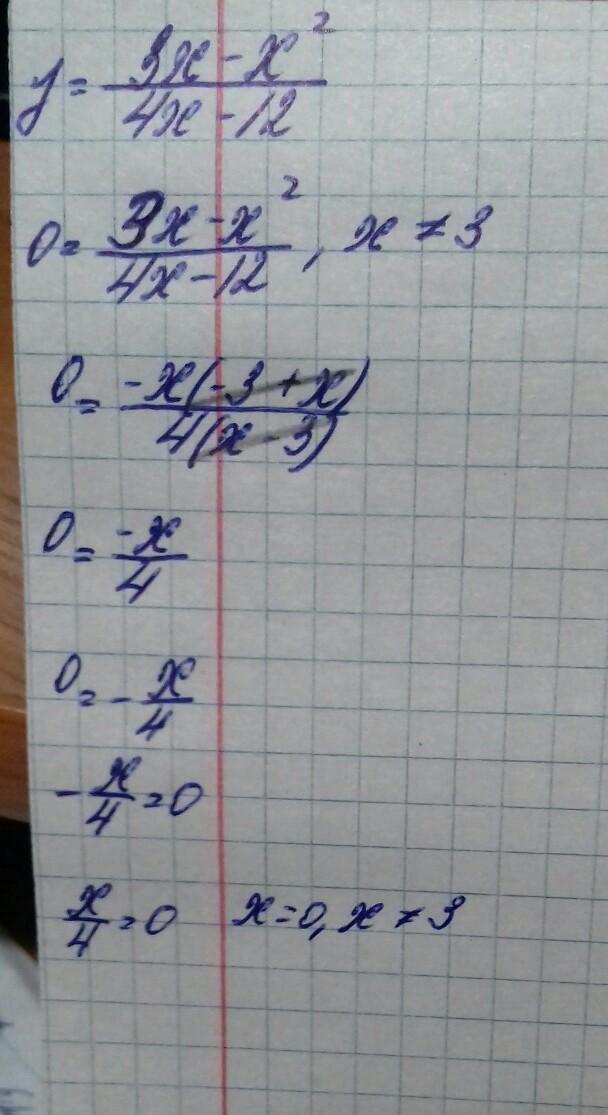 y = (3x - x²)/(4x - 12)
0 = (3x - x²)/(4x - 12), x ≠ 3
0 = (-x(-3 + x))/(4(x - 3))
0 = (-x)/4
0 = - x/4
- x/4 = 0
x/4 = 0 x = 0, x ≠ 3